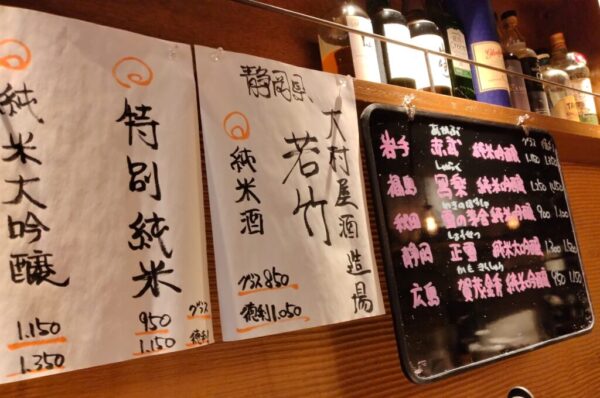 静岡県
大村屋酒造場
若竹
純米酒
グラス 850
徳利 1.050
特別純米
グラス 950
徳利 1.150
純米大吟醸
1.150
1.350
グラス
あかぶ
岩手 赤武 純米吟醸
福島 写楽 純米吟醸 1,150
秋田 雪の茅舎 純米吟醸 900 1,100
しょうせつ
静岡 正雪 純米大吟醸 1,300 1,500
かも きんしゅう
広島 賀茂金秀 純米吟醸 950 1,150